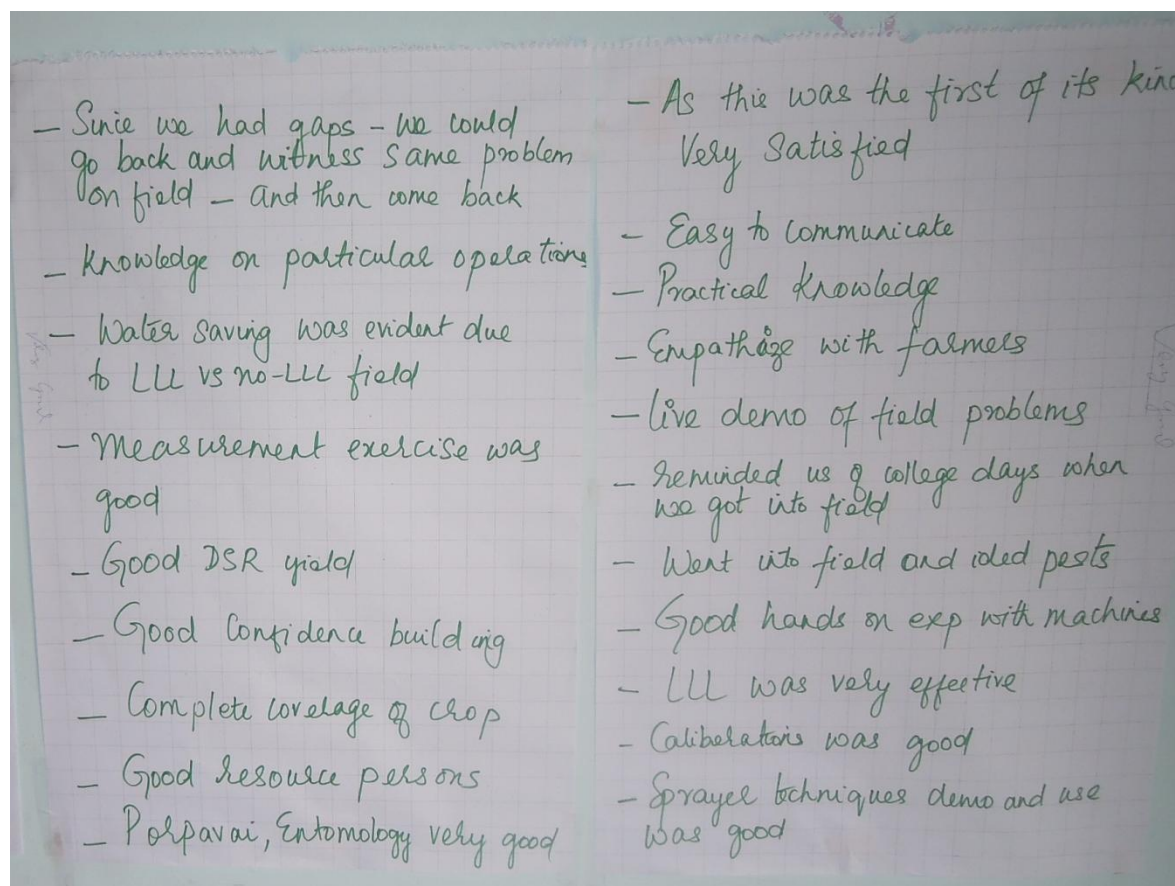 - Since we had gaps - we could
go back and witness same problem
on field - And then come back
- Knowledge on particular operations
- Water saving was evident due
to LLL vs no-LLL field
- Measurement exercise was
good
- Good DSR yield
- Good Confidence building
- Complete coverage of crop
- Good resource persons
- Porpavai, Entomology very good
- As this was the first of its kind
Very Satisfied
- Easy to communicate
- Practical Knowledge
- Empathize with farmers
- live demo of field problems
- reminded us of college days when
we got into field
- Went into field and ided pests
- Good hands on exp with machines
- LLL was very effective
- was good
- Sprayer techniques demo and use
was good